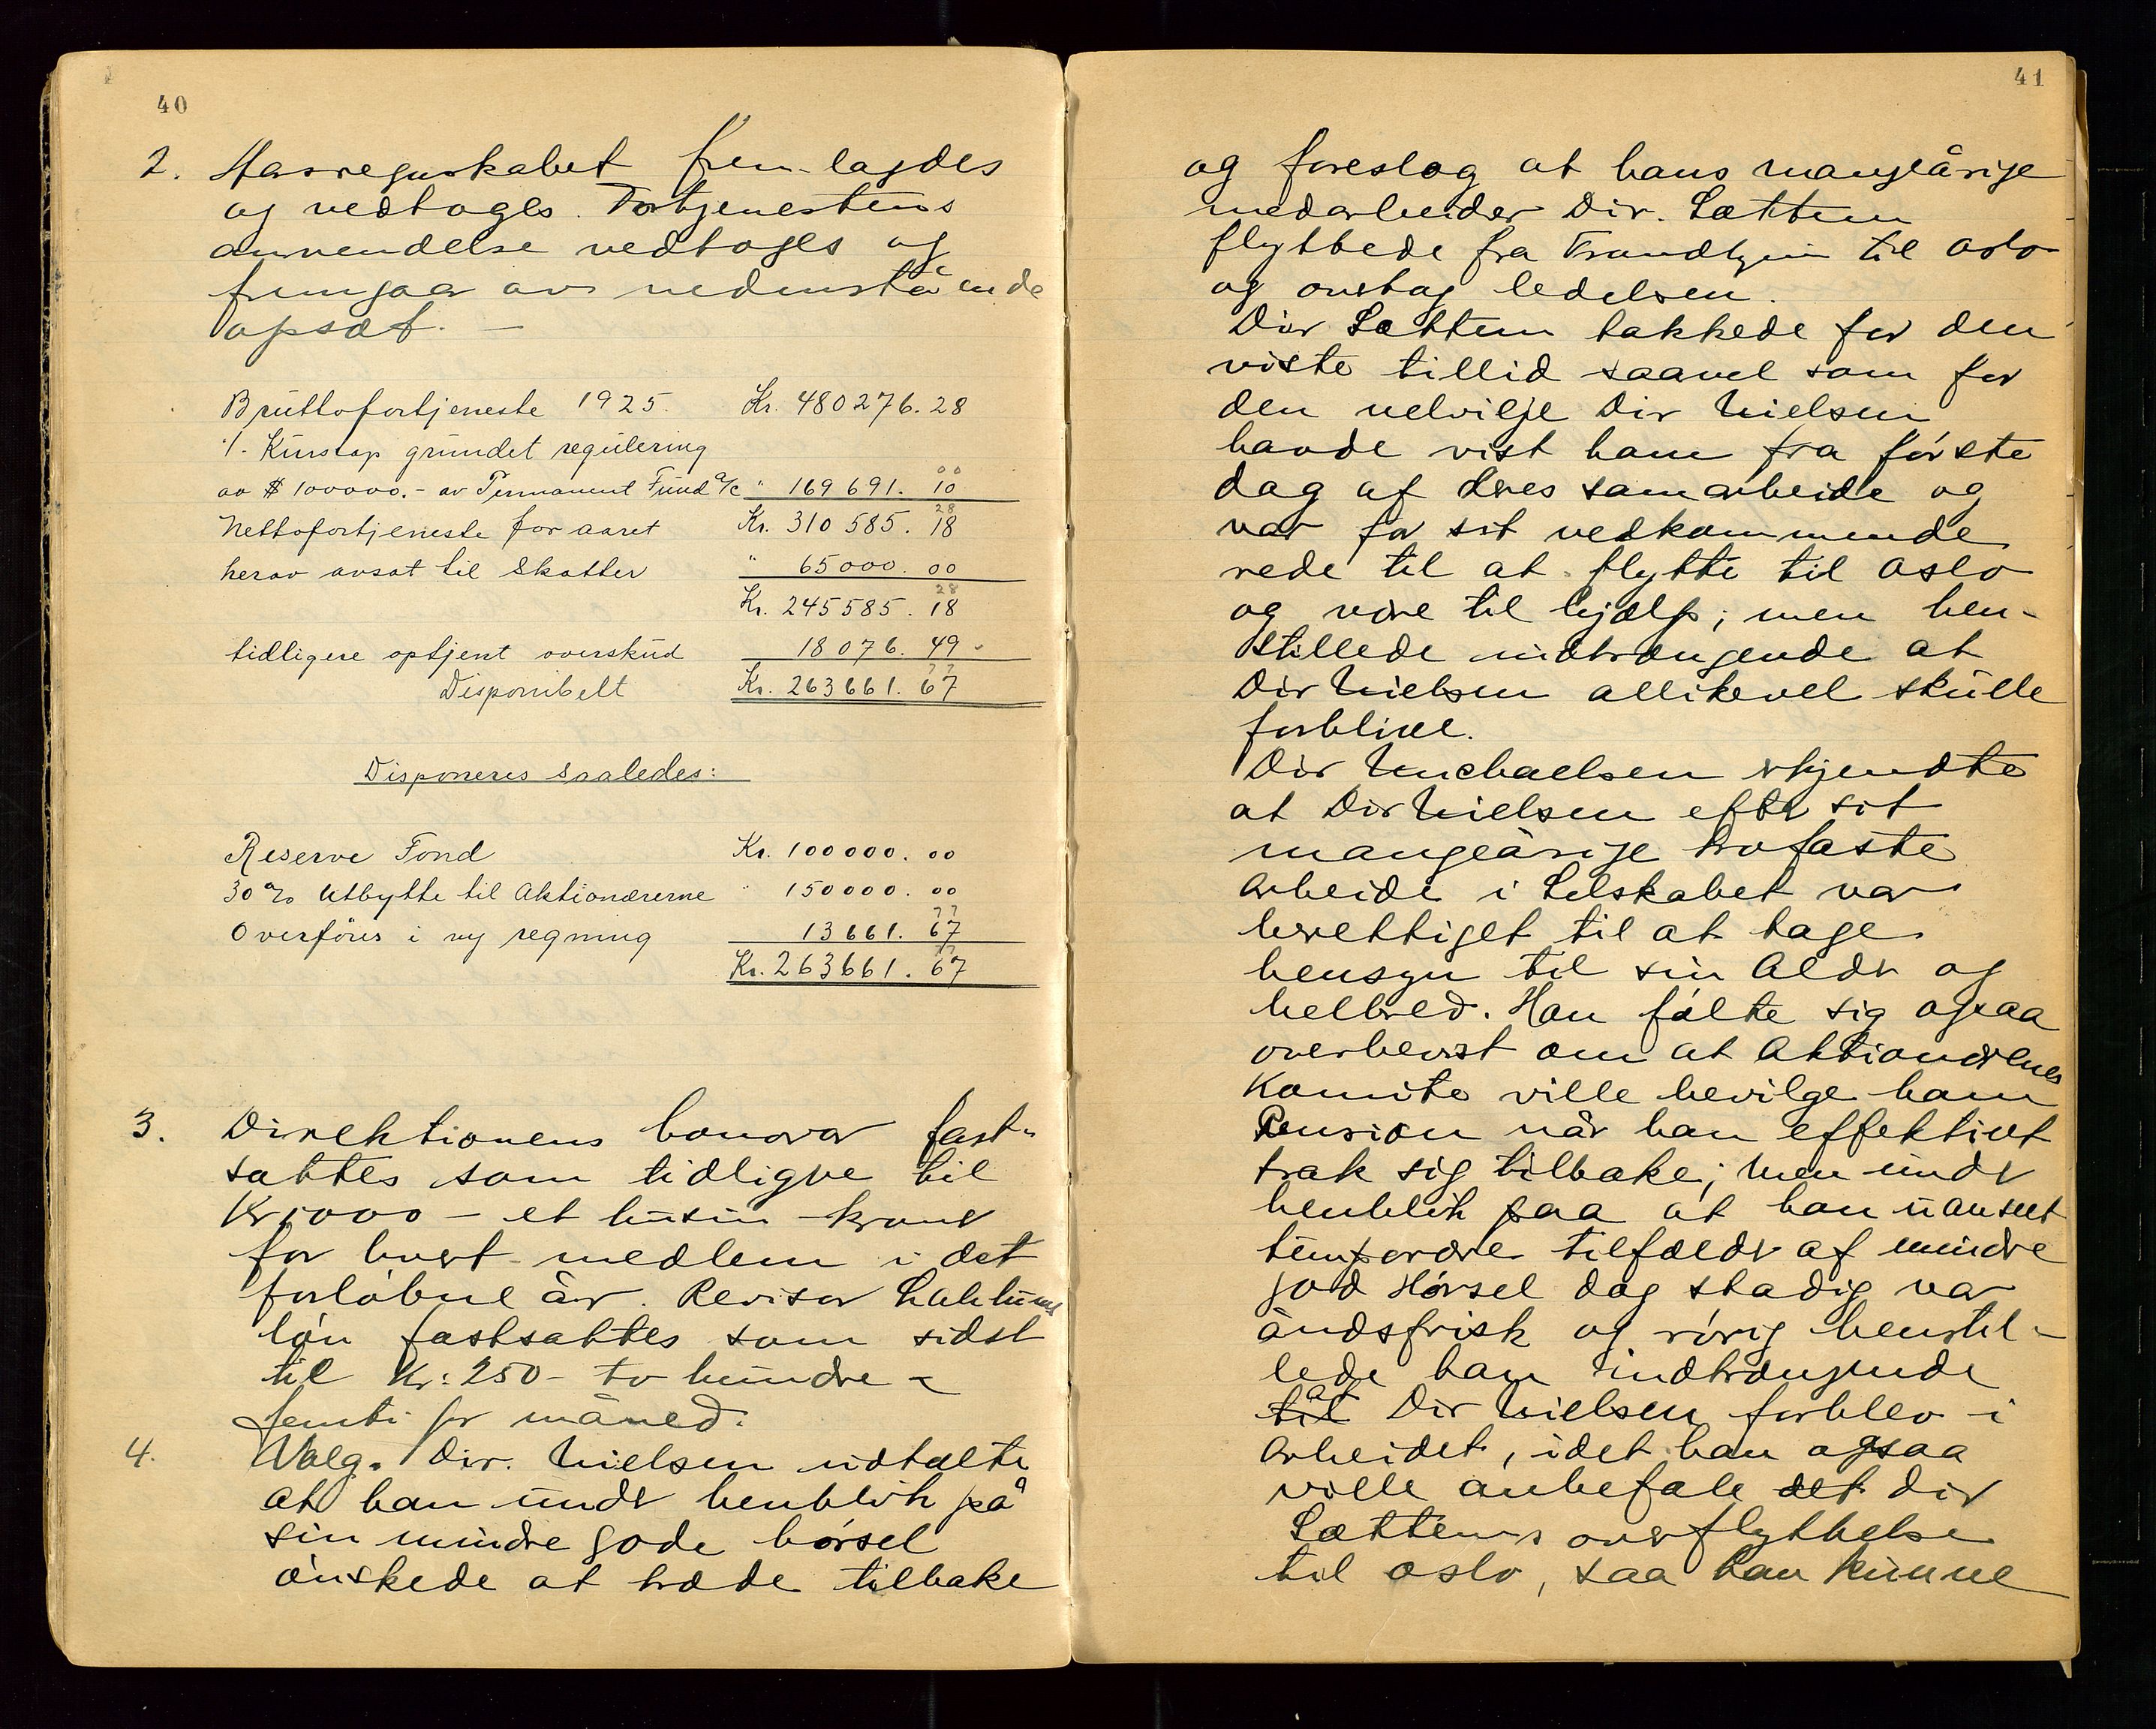 40
2. Aarsregnskabet frem-lagdes
og vedtoges. Fortjenestens
anvendelse vedtoges og
fremgaar av nedenstående
opsæt. —
Bruttofortjeneste 1925. Kr. 480276.28
·/. Kurstap grundet regulering
av $ 100000.- av Permanent Fund a/c " 169691. 10 00
Nettofortjeneste for aaret Kr. 310585. 18 28
herav avsat til Skatter " 65000. 00
Kr. 245585. 18 28
tidligere optjent overskud 18076. 49
Disponibelt Kr. 263661. 67 77
Disponeres saaledes:
Reserve Fond Kr. 100000. 00
30% Utbytte til Aktionærerne " 150000. 00
Overføres i ny regning 13661. 67 77
Kr. 263661. 67 77
3. Direktionens honorar fast-
sattes som tidligere til
Kr 1000 - et tusin - kroner
for hvert medlem i det
forløbne år. Revisor
løn fastsattes som sidst
til Kr: 250 - to hundre -
femti pr måned.
4. Valg. Dir. Nielsen udtalte
at han under henblik på
sin mindre gode hørsel
ønskede at træde tilbake
41
og foreslog at hans mangeårige
medarbeider Dir. Sættem
flyttede fra Trondhjem til Oslo
og overtog ledelsen.
Dir Sættem takkede for den
viste tillid saavel som for
den velvilje Dir Nielsen
havde vist ham fra første
dag af deres samarbeide og
var for sit vedkommende
rede til at flytte til Oslo
og være til hjælp; men hen-
stillede indtrængende at
Dir Nielsen allikevel skulle
forblive.
Dir Michaelsen erkjendte
at Dir Nielsen efter sit
mangeårige trofaste
arbeide i Selskabet var
berettiget til at tage
hensyn til sin Alder og
helbred. Han følte sig ogsaa
overbevist om at Aktionærenes
Komite ville bevilge ham
Pension når han effektivt
trak sig tilbake; men under
henblik paa at han uanseet
temporære tilfælder af mindre
god Hørsel dog stadig var
åndsfrisk og rørig henstil-
lede han indtrængende
til at Dir Nielsen forblev i
arbeidet, idet han ogsaa
ville anbefale det Dir
Sættems overflyttelse
til Oslo, saa han kunne